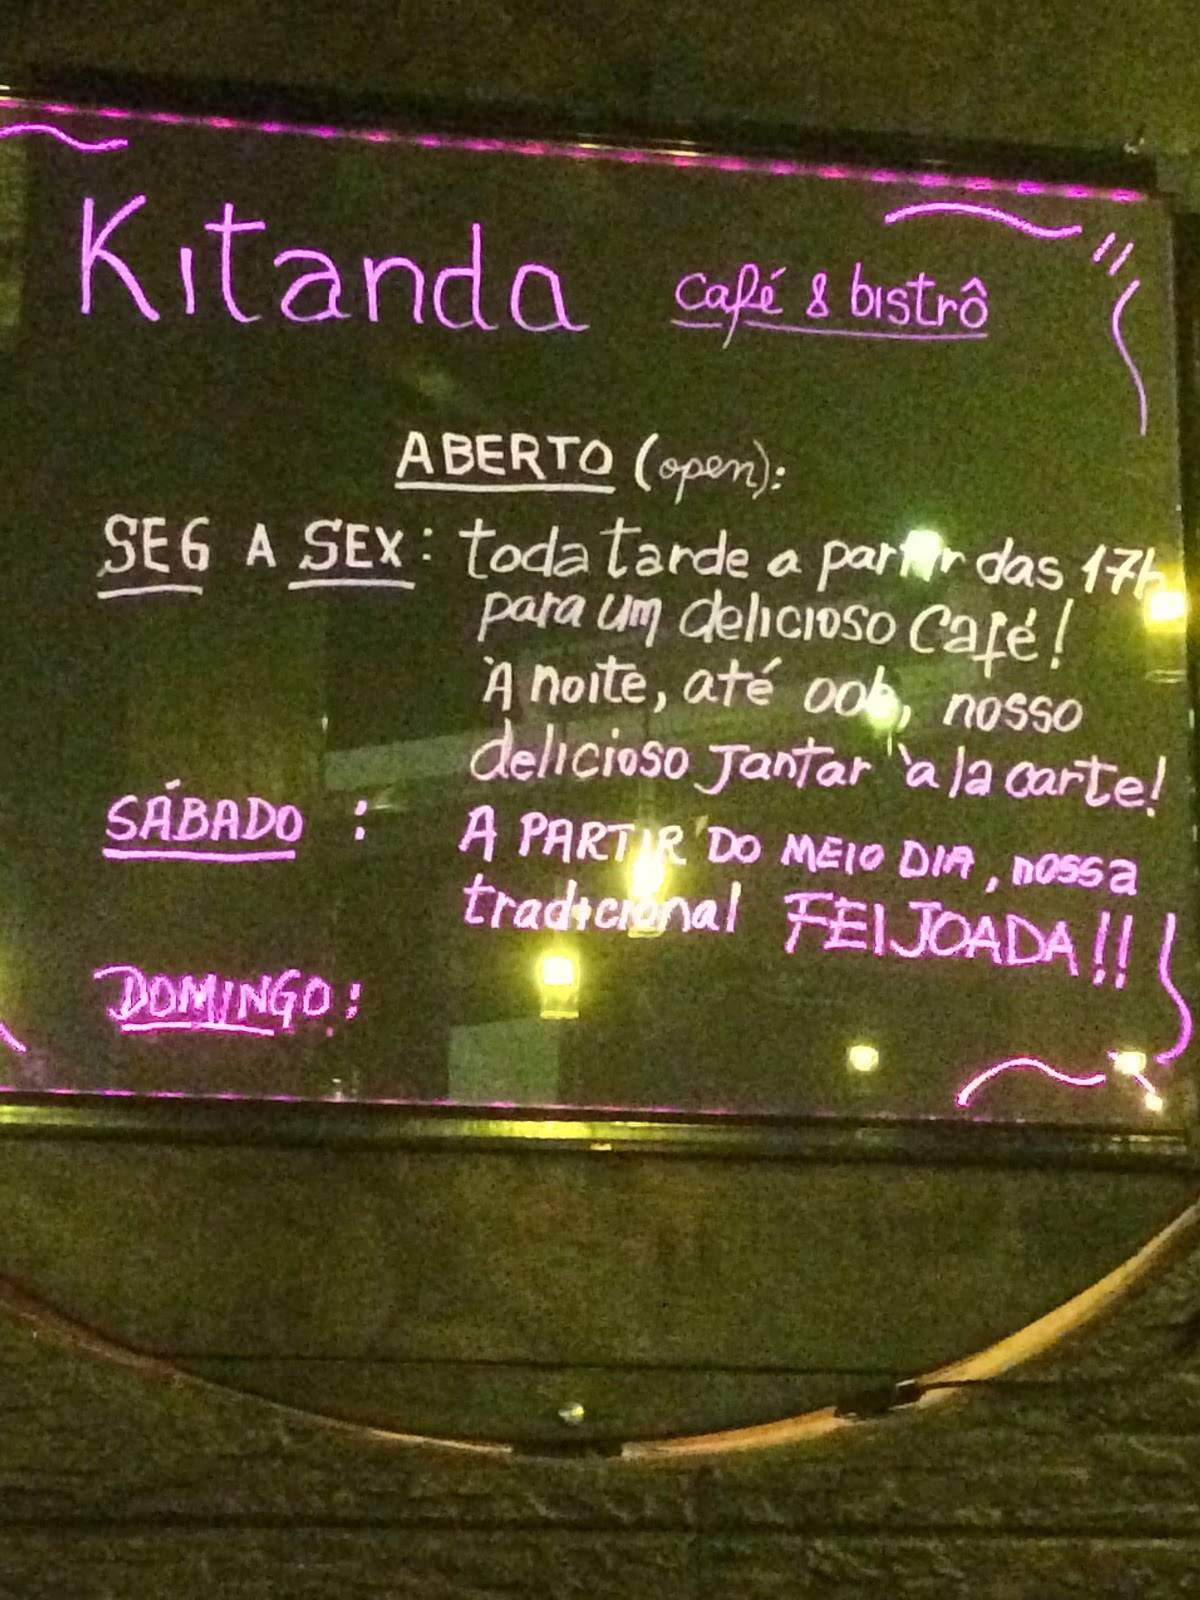 Kitanda café & bistrô
ABERTO (open):
SEG A SEX: toda tarde a partir das 17h
para um delicioso Café!
À noite, até 00h, nosso
delicioso Jantar à la carte!
SÁBADO : A PARTIR DO MEIO DIA, nossa
tradicional FEIJOADA!!
DOMINGO: